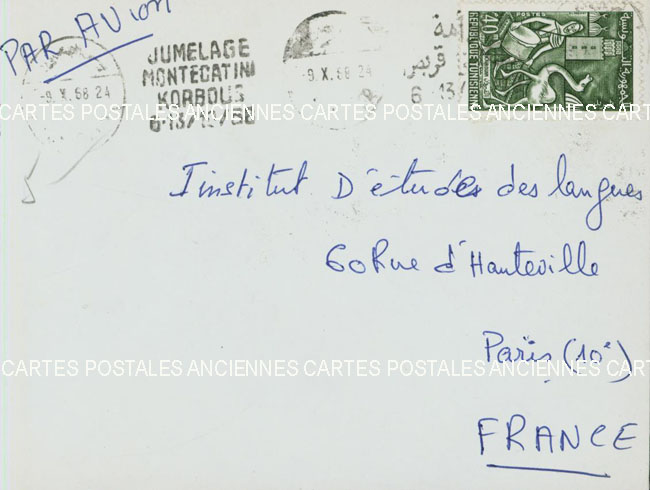 PAR AVION
JUMELAGE
MONTECATINI
KORBOUS
6-13/10/68
9.X.68 24
9.X.68 24
قربص
6 13/
40
POSTES
REPUBLIQUE TUNISIENNE
الجمهورية التونسية
Iinstitut D'études des langues
60 Rue d'Hauteville
CARTES POSTALES ANCIENNES CARTES POSTALES ANCIENNES CARTES
Paris (10e)
FRANCE